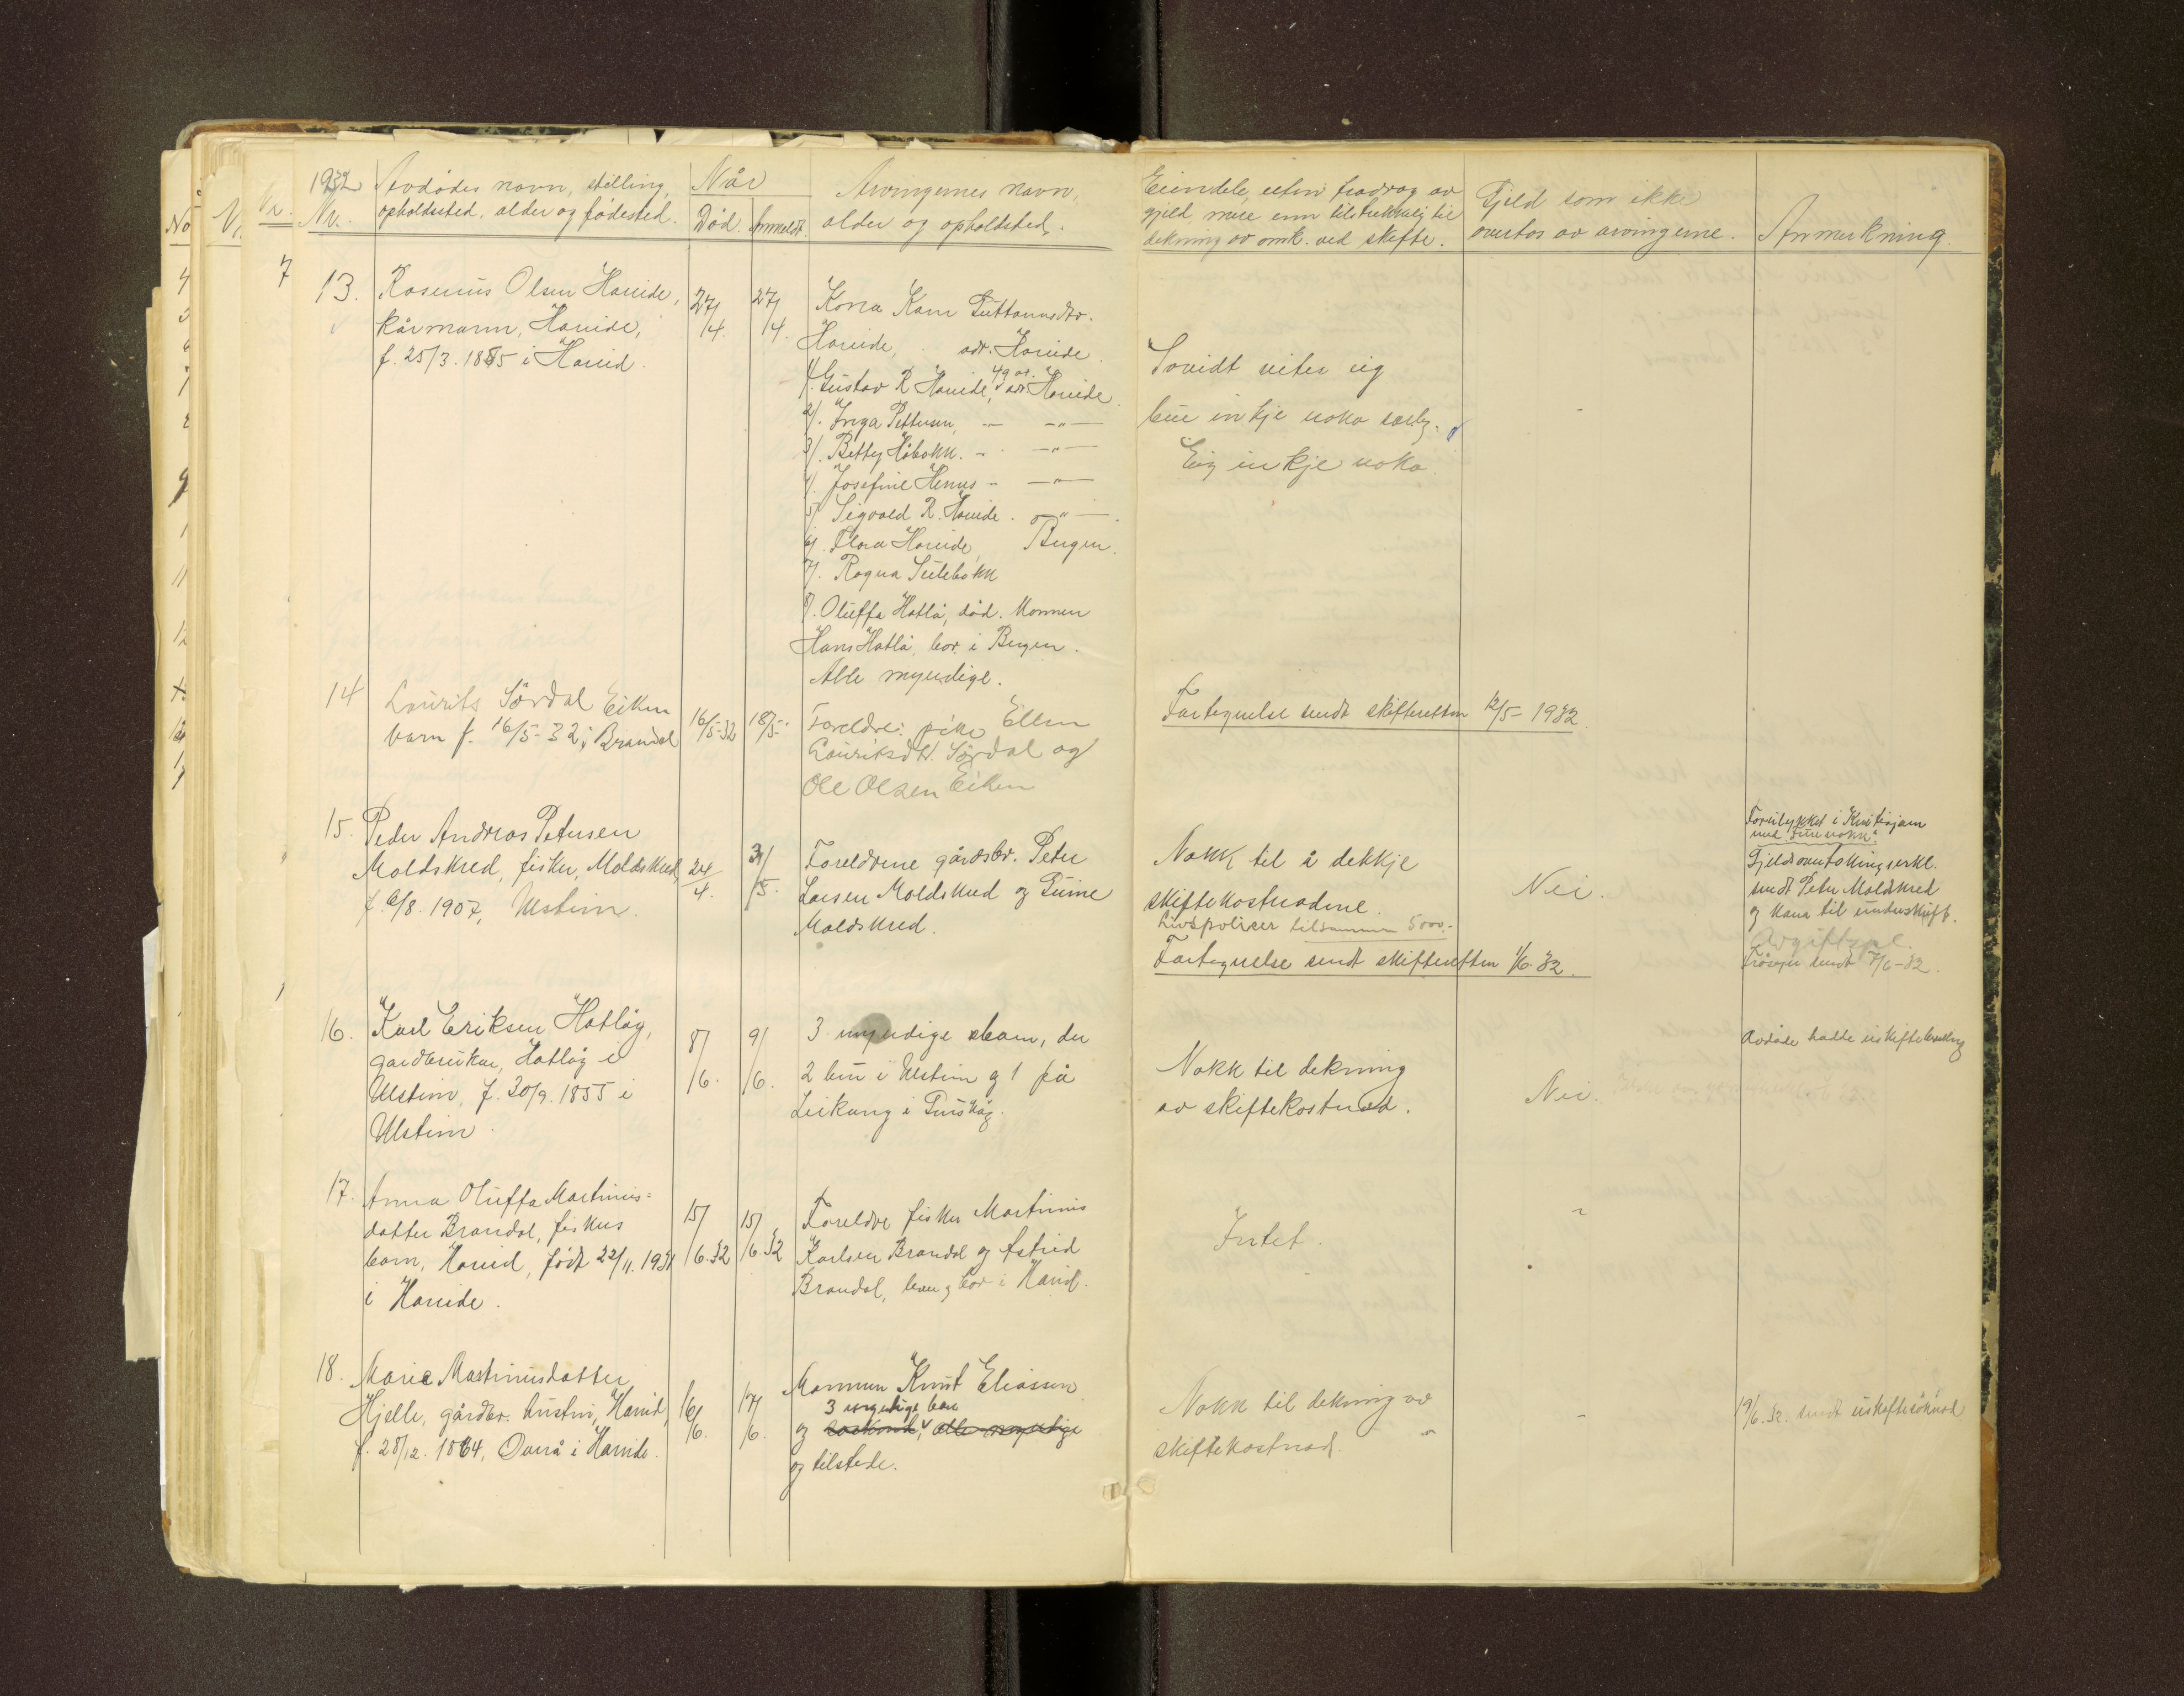 1932
Nr.
Avdødes navn, stilling,
opholdssted, alder og fødested.
Når
Død. Anmeldt.
Arvingernes navn,
alder og opholdsted.
Eiendele, uten fradrag av
gjeld, mere enn tilstrekkelig til
dekning av omk. ved skifte.
Gjeld som ikke
overtas av arvingerne.
Anmerkning.
13.
Rasmus Olsen Hareide,
kårmann, Hareide,
f. 25/3. 1855 i Hareid.
27/4.
27/4.
Kona Karn
Hareide, adr. Hareide.
1/. Gustav R Hareide, 49 år. adr. Hareide.
2/. Inga Pettersen, — —"—
3/. Betty Håbakk. - —"—
4/. Josefine - —"—
5/. Sigvald R. Hareide. —"—.
6/. Flora Hareide, Bergen.
7/. Ragna
8/. Oluffa Hatlø, død. Mannen
Hans Hatlø, bor i Bergen.
Alle myndige.
Sovidt
inkje noko
Eig inkje noko.
Fortegnelse sendt skifteretten 12/5-1932.
14
Laurits Sørdal Eiken
barn f. 16/5-32 i Brandal
16/5-32
18/5-
Foreldre: pike Ellen
Lauriksdtr. Sørdal og
Ole Olsen Eiken
15.
Peder Andreas Petersen
Moldskred, fisker, Moldskred,
f. 6/8. 1907, Ulstein.
24/4.
31/5.
Foreldrene gårdsbr. Peter
Larsen Moldskred og
Moldskred.
Nokk til å dekkje
skiftekostnadene.
Livspoliser tilsammen 5000.-
Fortegnelse sendt skifteretten 1/6-32.
Nei.
Forulykket i
med
Gjeldsovertakingserkl.
sendt Peter Moldskred
og kona til underskrift.
sendt 7/6-32.
16.
Karl Eriksen Hatløy,
gardbrukar, Hatløy i
Ulstein, f. 30/9. 1855 i
Ulstein.
8/6.
9/6.
3 myndige born, der
2 bur i Ulstein og 1 på
Leikong i
Nokk til dekning
av skiftekostnad.
Nei.
Avdøde hadde uskiftebevilling
17.
Anna Oluffa Martinus=
datter Brandal, fiskers
barn, Hareid, født 22/11. 1931
i Hareide.
15/6.32
15/6.32
Foreldre fisker Martinus
Karlsen Brandal og Astrid
Brandal, bor i Hareid.
Intet.
18.
Marie Martinusdatter
Hjelle, gårdbr. hustru, Hareid,
f. 28/12. 1864, Overå i Hareide.
16/6.
17/6.
Mannen Knut Eliassen
3 myndige barn
og alle myndige
og tilstede.
Nokk til dekning av
skiftekostnad.
19/6.32. sendt